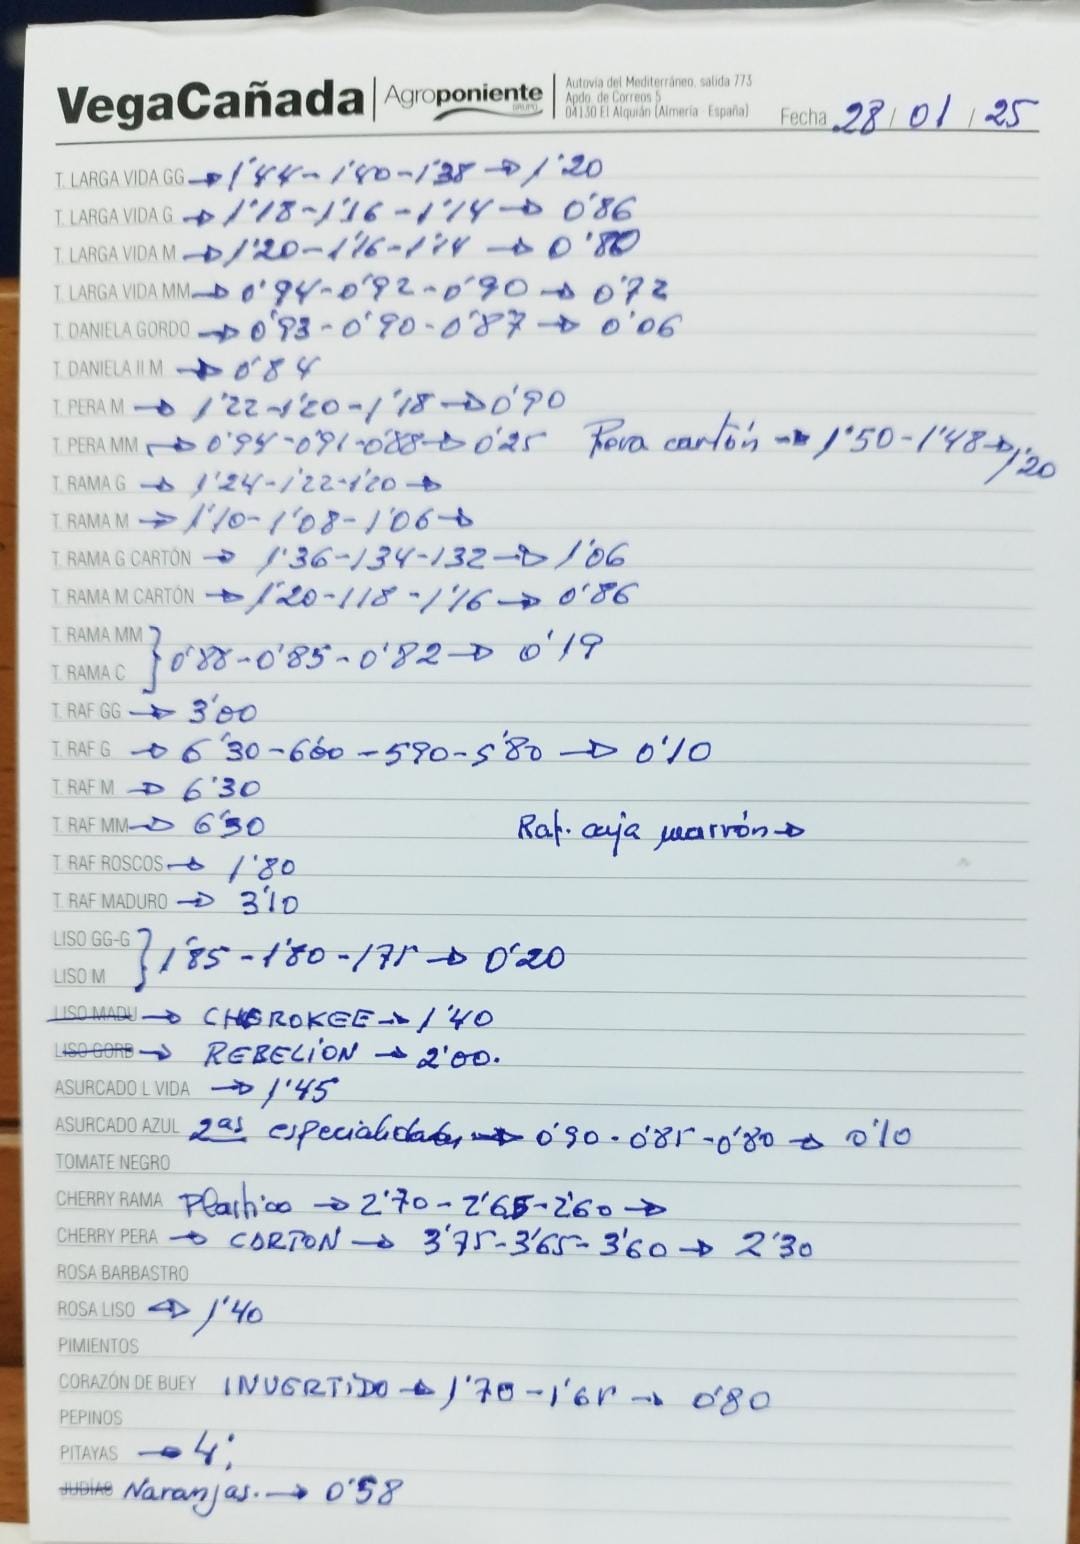 VegaCañada | Agroponiente GRUPO | Autovía del Mediterráneo, salida 773
Apdo. de Correos 5
04130 El Alquián (Almería - España)
Fecha 28 / 01 / 25
T. LARGA VIDA GG → 1'44 - 1'40 - 1'38 → 1'20
T. LARGA VIDA G → 1'18 - 1'16 - 1'14 → 0'86
T. LARGA VIDA M → 1'20 - 1'16 - 1'14 → 0'80
T. LARGA VIDA MM → 0'94 - 0'92 - 0'90 → 0'72
T. DANIELA GORDO → 0'93 - 0'90 - 0'87 → 0'06
T. DANIELA II M → 0'84
T. PERA M → 1'22 - 1'20 - 1'18 → 0'90
T. PERA MM → 0'94 - 0'91 - 0'88 → 0'25 Pera cartón → 1'50 - 1'48 → 1'20
T. RAMA G → 1'24 - 1'22 - 1'20 →
T. RAMA M → 1'10 - 1'08 - 1'06 →
T. RAMA G CARTÓN → 1'36 - 134 - 132 → 1'06
T. RAMA M CARTÓN → 1'20 - 118 - 1'16 → 0'86
T. RAMA MM
T. RAMA C } 0'88 - 0'85 - 0'82 → 0'19
T. RAF GG → 3'00
T. RAF G → 6'30 - 600 - 590 - 5'80 → 0'10
T. RAF M → 6'30
T. RAF MM → 6'30 Raf. caja marrón →
T. RAF ROSCOS → 1'80
T. RAF MADURO → 3'10
LISO GG-G
LISO M } 1'85 - 1'80 - 175 → 0'20
LISO MADU → CHEROKEE → 1'40
LISO GORD → REBELION → 2'00.
ASURCADO L VIDA → 1'45
ASURCADO AZUL 2as especialidades → 0'90 - 0'85 - 0'80 → 0'10
TOMATE NEGRO
CHERRY RAMA Plastico → 2'70 - 2'65 - 2'60 →
CHERRY PERA → CARTON → 3'75 - 3'65 - 3'60 → 2'30
ROSA BARBASTRO
ROSA LISO → 1'40
PIMIENTOS
CORAZÓN DE BUEY INVERTIDO → 1'70 - 1'65 → 0'80
PEPINOS
PITAYAS → 4'
JUDÍAS Naranjas. → 0'58